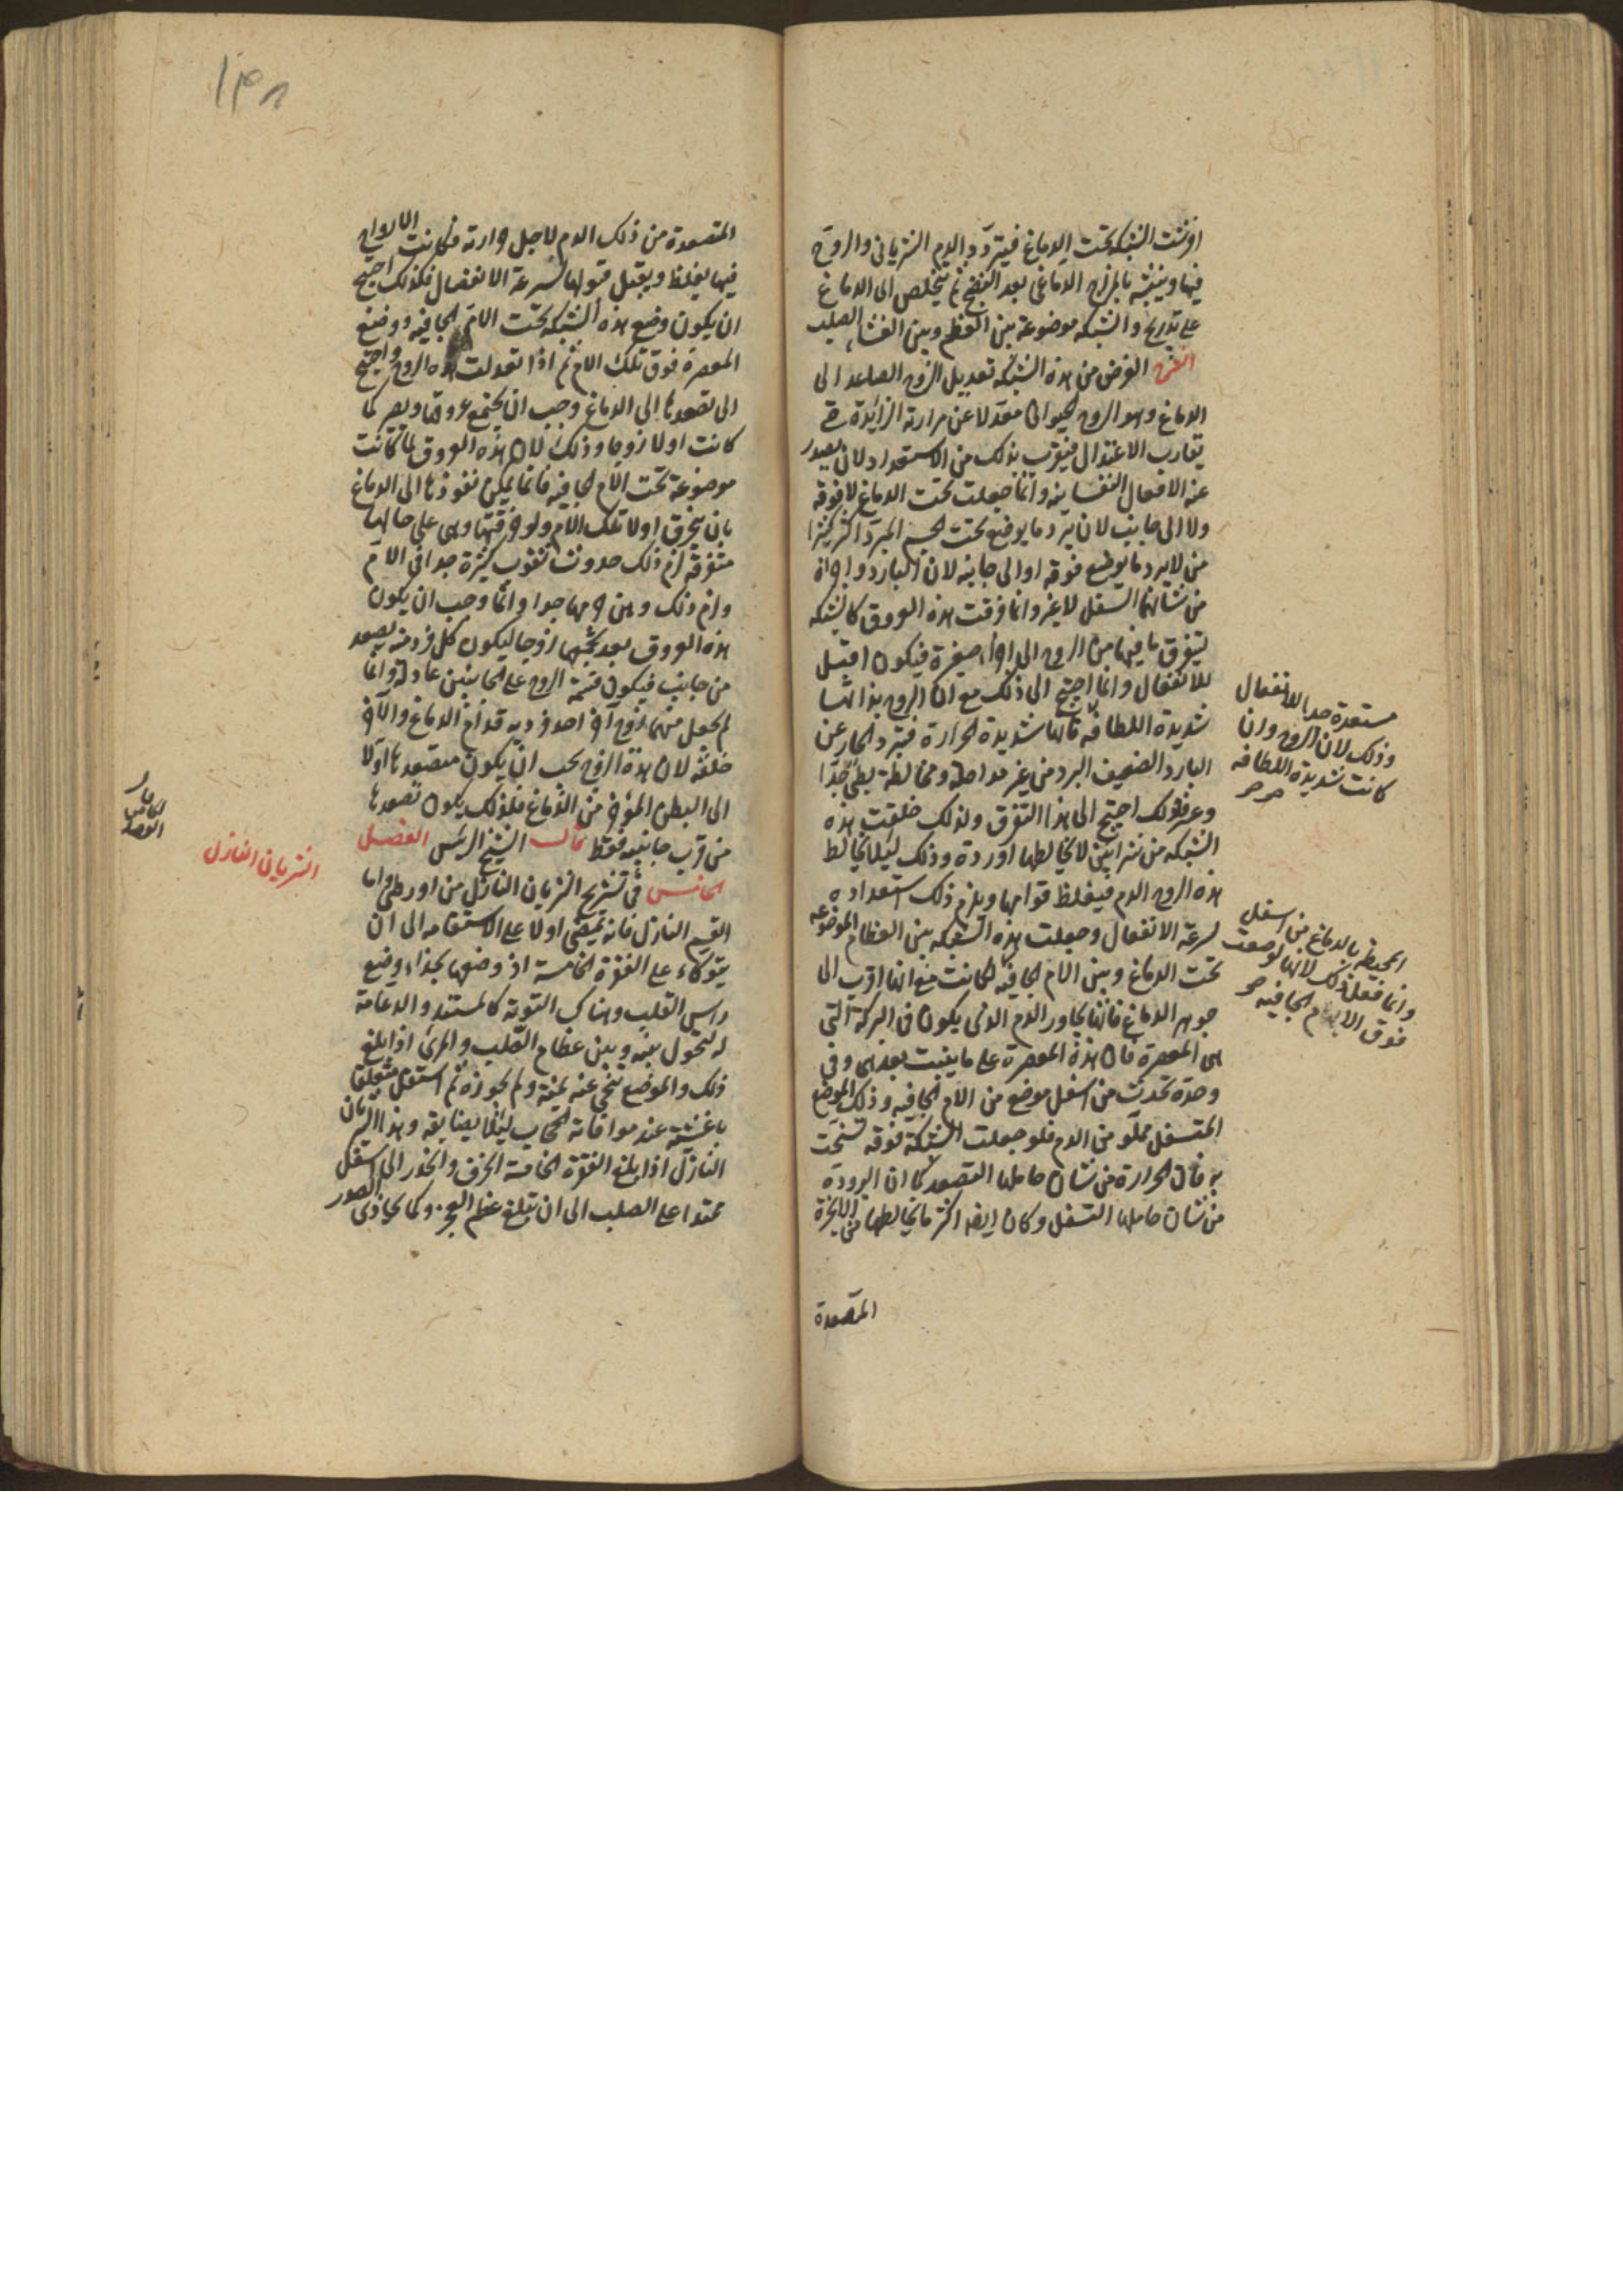 افرشت الشبكة تحت الدماغ فيتردد الدم الشرياني والروح
فيها ويتشبه بالمزاج الدماغي بعد النضج ثم يتخلص الى الدماغ
على تدريج والشبكة موضوعة بين العظم وبين الغشاء الصلب
الغرض من هذه الشبكة تعديل الروح الصاعد الى
الدماغ وهو الروح الحيواني معدلا عن حرارته الزائدة حتى
يقارب الاعتدال فيقرب بذلك من الاستعداد لان يصدر
عنه الافعال النفسانية وانما جعلت تحت الدماغ لا فوقه
ولا الى جانب لان تبرد ما يوضع تحت الجسم المبرد اكثر كثيرا
من لا يبرد ما يوضع فوقه او الى جانبه لان البارد واجزاه
من شانهما التسفل لا غير وانما فرقت هذه العروق كالشبكة
ليتفرق ما فيها من الروح الى اجزاء صغيرة فيكون اقبل
للانفعال وانما احتيج الى ذلك مع ان الروح بذاتها
شديدة اللطافة فانها شديدة الحرارة فتبرد الحار عن
البارد الضعيف البرد من غير مداخلة ومخالطة بطيء جدا
وعن ذلك احتيج الى هذا التفرق ولذلك خلقت هذه
الشبكة من شرايين لا يخالطها اوردة وذلك ليلا يخالط
هذه الروح الدم فيغلظ قوامها ويلزم ذلك استعداده
لسرعة الانفعال وجعلت هذه الشبكة بين العظام الموضوعة
تحت الدماغ وبين الام الجافية لكانت مع انها اقرب الى
جوهر الدماغ فانها تجاور الدم الذي يكون في البركة التي
هي المعصرة فان هذه المعصرة على ما يثبت بعد هي وفي
وحدة تحدث من اسفل موضع من الام الجافية وذلك الموضع
المتسفل مملو من الدم فلو جعلت الشبكة فوقه لتسخنت
به فان الحرارة من شان حاملها التصعد كما ان البرودة
من شان حاملها التسفل وكان ايضا اكثر ما يخالطها من الابخرة
المتصعدة
مستعدة جدا للانفعال
وذلك لان الروح وان
كانت شديدة اللطافة
المحيطة بالدماغ من اسفل
وانما فعل ذلك لانها لو وضعت
فوق الام الجافية
١٣٨
المتصعدة من ذلك الدم لاجل حرارته فكانت الارواح
فيها يغلظ ويقل قبولها لسرعة الانفعال فلذلك احتيج
ان يكون وضع هذه الشبكة تحت الام الجافية ووضع
المعصرة فوق تلك الام ثم اذا تعدلت هذه الروح واحتيج
الى تصعدها الى الدماغ وجب ان يجتمع عروقها ويصير كما
كانت اولا زوجا وذلك لان هذه العروق لما كانت
موضوعة تحت الام الجافية فانما يمكن نفوذها الى الدماغ
بان يخرق اولا تلك الام ولو خرقتها وهي على حالها
متفرقة لزم ذلك حدوث ثقوب كثيرة جدا في الام
ولزم ذلك وهن جرمها جدا وانما وجب ان يكون
هذه العروق بعد تجمعها زوجا ليكون كل فرد منه يصعد
من جانب فيكون قسمة الروح على الجانبين عادلة وانما
لم يجعل منهما زوج اخر احد فرديه قدام الدماغ والاخر
خلفه لان هذه الروح يجب ان يكون متصعدها اولا
الى البطن المؤخر من الدماغ فلذلك يكون تصعدها
من قرب جانبيه فقط قال الشيخ الرئيس الفصل
الخامس في تشريح الشريان النازل من اورطي واما
القسم النازل فانه يمضي اولا على الاستقامة الى ان
يتوكاء على الفقرة الخامسة اذ وضعها بحذاء وضع
راس القلب وهناك التوتة كالمستند والدعامة
له لتحول بينه وبين عظام الصلب والمرئ اذا بلغ
ذلك والموضع تنحي عنه يمنة ولم يجوزه ثم استقل متعلقا
باغشيته عند موافاته الحجاب ليلا يضايقه وهذا الشريان
النازل اذا بلغ الفقرة الخامسة انحرف وانحدر الى اسفل
ممتدا على الصلب الى ان تبلغ عظم العجز وكما يحاذي الصدر
الشريان النازل
الخامس
الفصل